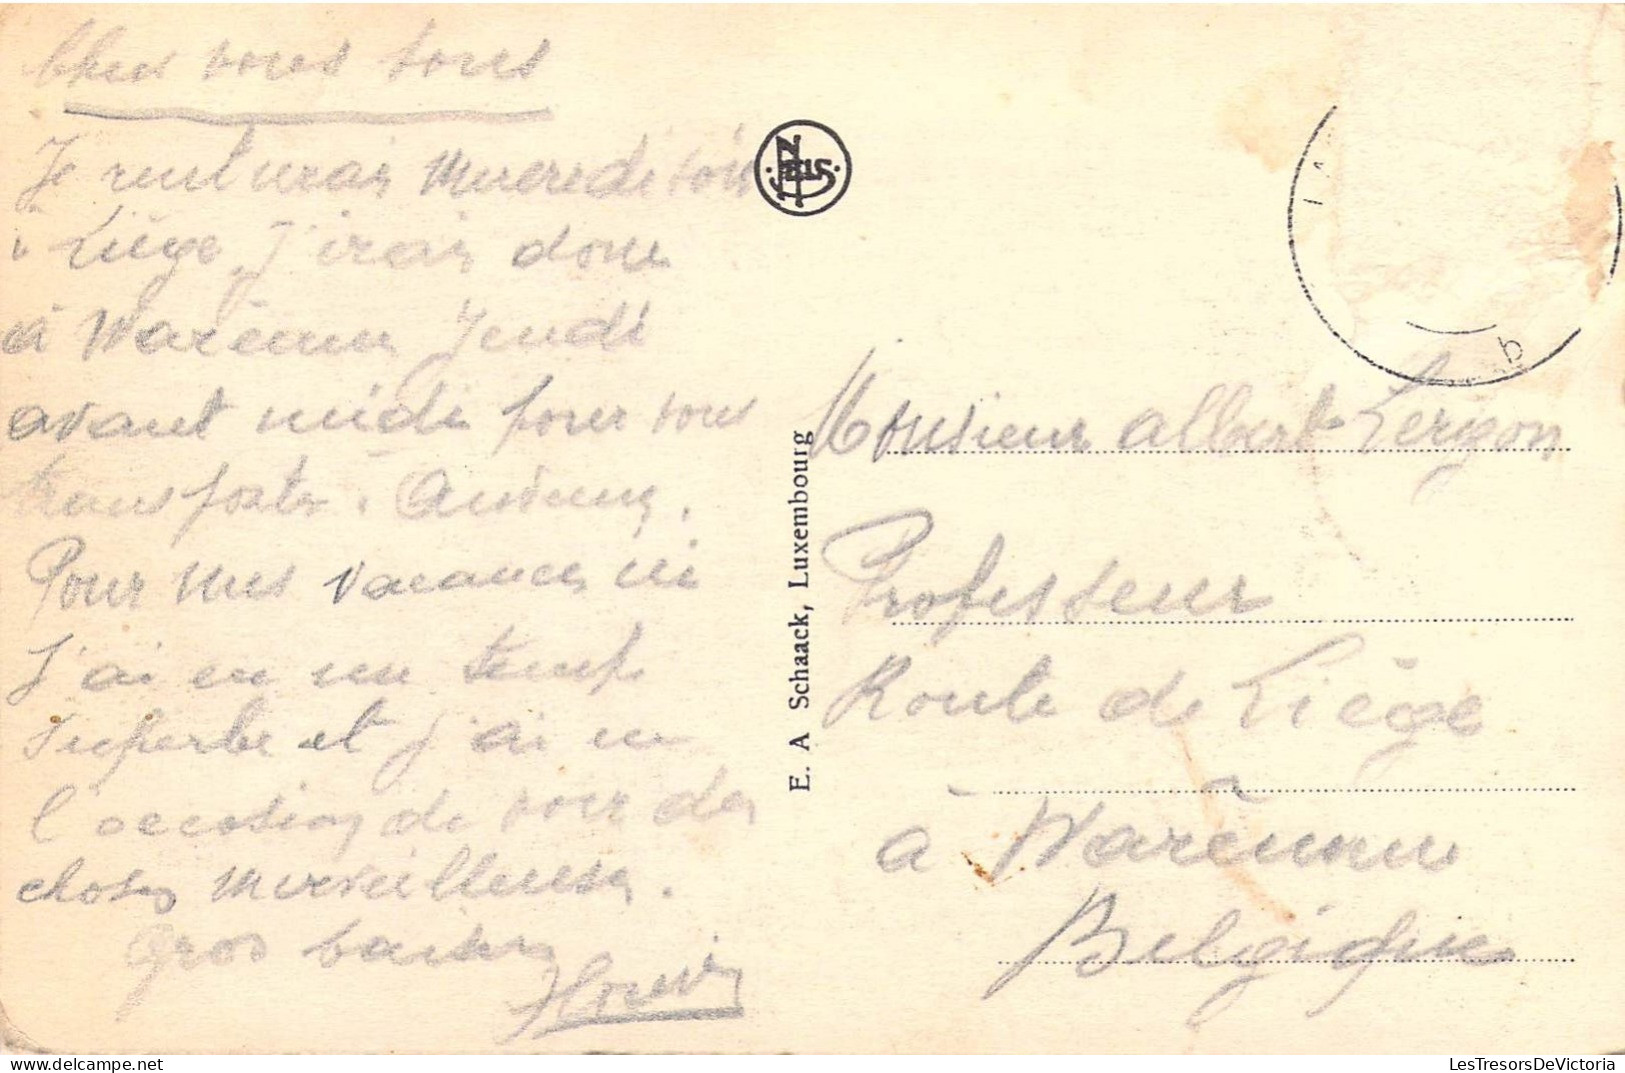 Chers vous tous
Je rentrerai Mercredi soir
à Liège, J'irais donc
à Waremme Jeudi
avant midi pour vous
Pour mes vacances ici
J'ai eu un temps
superbe et j'ai eu
l'occasion de voir des
choses merveilleuses.
Gros baisers
NELS
E. A Schaack, Luxembourg
b
Monsieur Albert
Professeur
Route de Liège
à Waremme
Belgique
LesTresorsDeVictoria